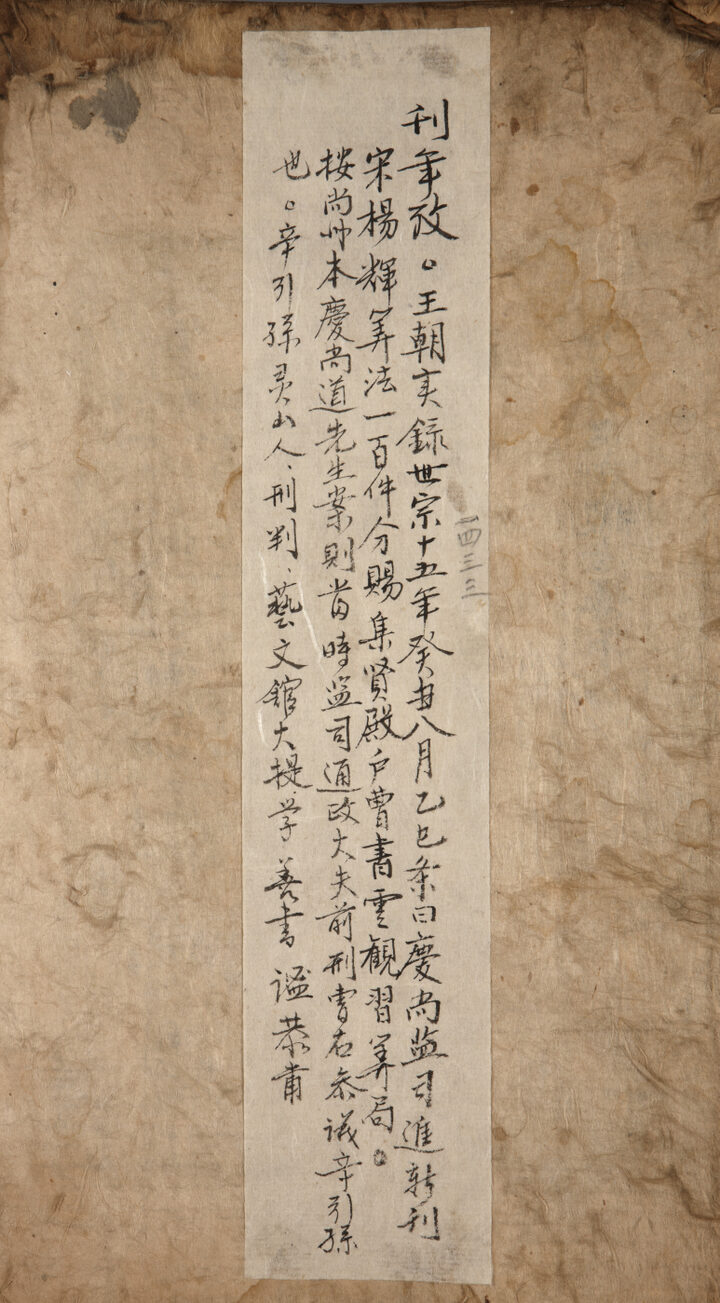 刊年攷。王朝実録世宗十五年癸丑八月乙巳条曰慶尚監司進新刊
宋楊輝筭法一百件分賜集賢殿戸曹書雲観習筭局。
按尚州本慶尚道先生案則当時监司通政大夫前刑曹右参議辛引孫
也。辛引孫灵山人、刑判、藝文舘大提学善書 謚恭甫
一四三三